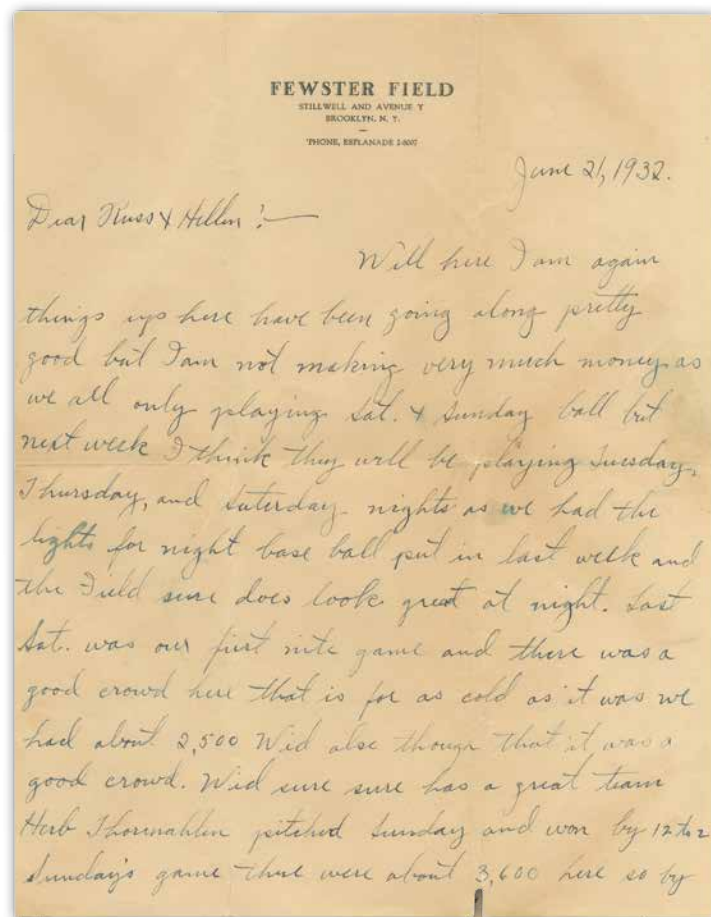 FEWSTER FIELD
STILLWELL AND AVENUE Y
BROOKLYN, N. Y.
'PHONE, ESPLANADE 2-8007
June 21, 1932.
Dear Russ & Hellen!—
Well here I am again
things ups here have been going along pretty
good but I am not making very much money as
we all only playing Sat. & Sunday ball but
next week I think they will be playing Tuesday,
Thursday, and Saterday nights as we had the
lights for night base ball put in last week and
the Field sure does look great at night. Last
Sat. was our first nite game and there was a
good crowd here that is for as cold as it was we
had about 2,500 Wid also though that it was a
good crowd. Wid sure sure has a great team
Herb Thormahlen pitched Sunday and won by 12 to 2
Sunday's game there were about 3,600 here so by